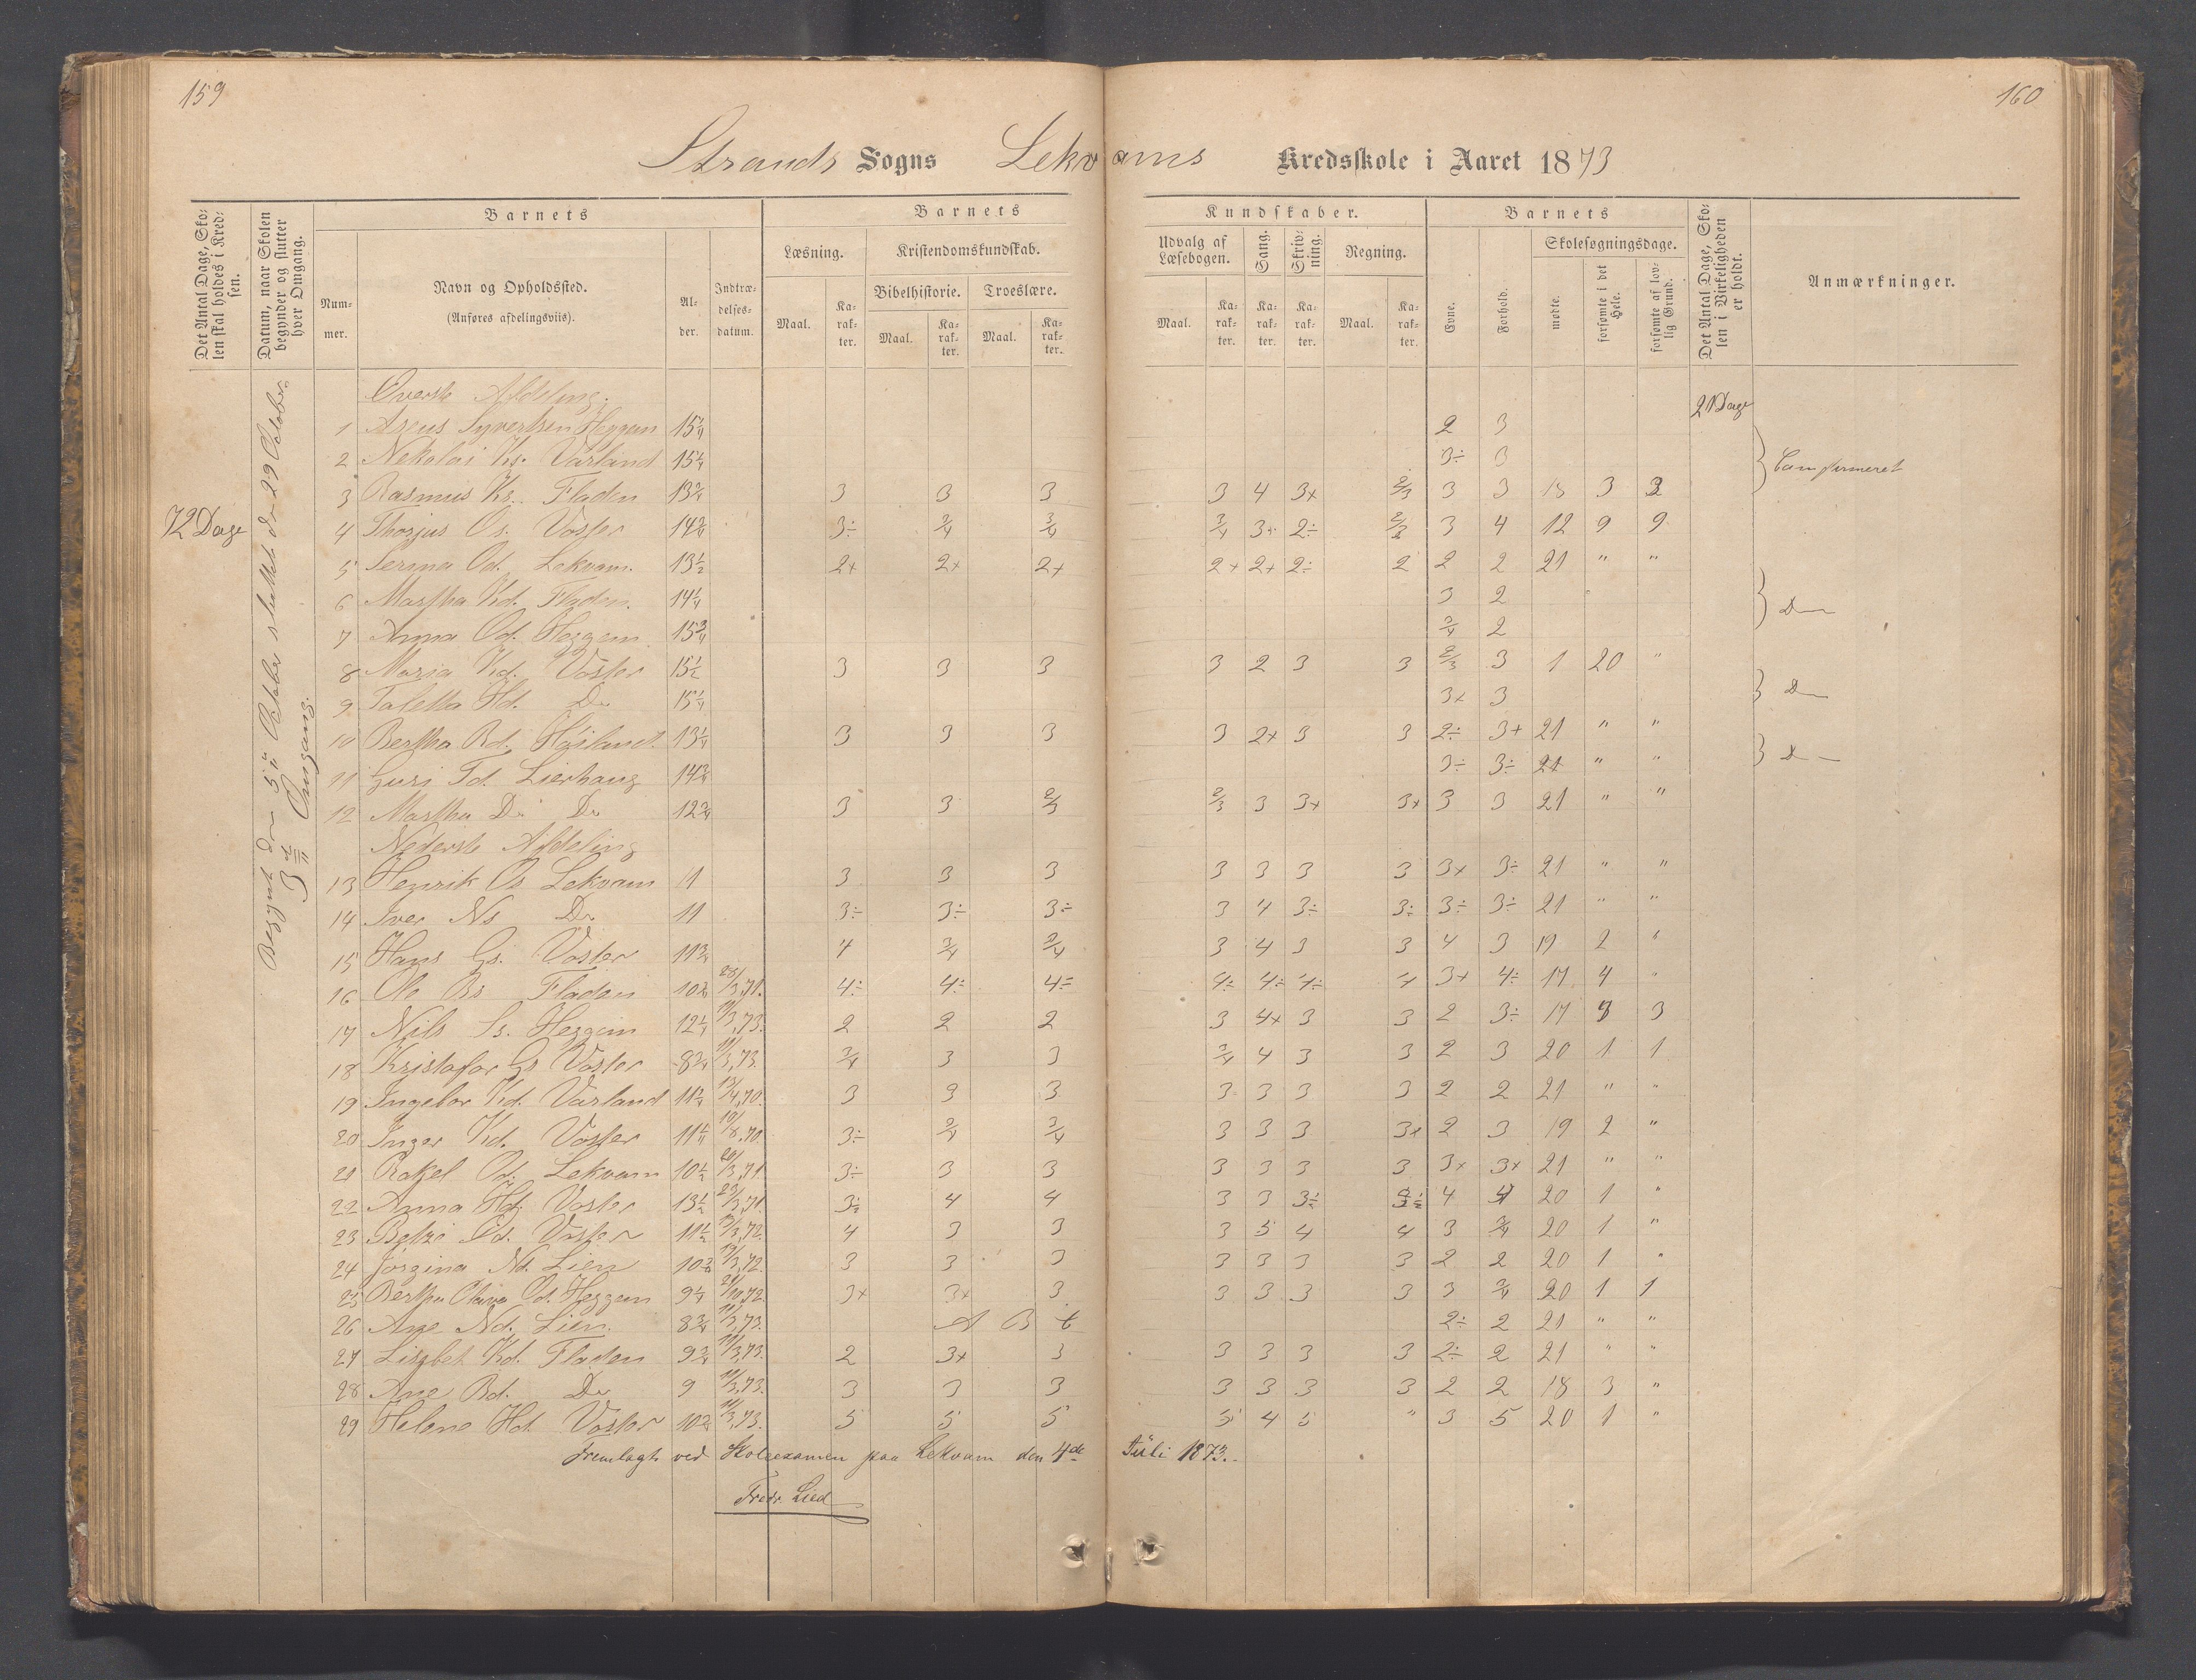 159
160
Strands Sogns Lekvams Kredsskole i Aaret 1873
Det Antal Dage, Skolen skal holdes i Kredsen.
Datum, naar Skolen begynder og slutter hver Omgang.
Barnets
Nummer.
Navn og Opholdssted.
(Anføres afdelingsviis).
Alder.
Indtrædelsesdatum.
Barnets Kundskaber.
Læsning.
Kristendomskundskab.
Bibelhistorie.
Troeslære.
Udvalg af Læsebogen.
Sang.
Skrivning.
Regning.
Maal.
Karakter.
Barnets
Evne.
Forhold.
Skolesøgningsdage.
mødte.
forsømte i det Hele.
forsømte af lovlig Grund.
Det Antal Dage, Skolen i Virkeligheden er holdt.
Anmærkninger.
72 Dage
21 Dage
Øverste Afdeling.
1 Syvertsen Heggem 15 1/4 2 3
2 Nekolai Ks. Varland 15 1/4 3÷ 3 Confirmeret
3 Rasmus Ks. Fladen 13 3/4 3 3 3 3 4 3+ 2/3 3 3 18 3 3
4 Os. Voster 14 3/4 3÷ 3/4 3/4 3/4 3÷ 2÷ 2/3 3 4 12 9 9
5 Serina Od. Lekvam. 13 1/2 2+ 2+ 2+ 2+ 2+ 2÷ 2 2 2 21 " "
6 Martha Kd. Fladen. 14 1/4 3 2 D
7 Anna Od. Heggem 15 3/4 3/4 2
8 Maria Kd. Voster 15 1/2 3 3 3 3 2 3 3 2/3 3 1 20 "
9 Taletta Hd. Do 15 1/4 3+ 3 D
10 Bertha Bd. Høiland. 13 1/4 3 3 3 3 2+ 3 3 2÷ 3+ 21 " "
11 Guri Td. Lierhaug 14 3/4 3÷ 3÷ 21 " " D
12 Martha Do Do 12 3/4 3 3 2/3 2/3 3 3+ 3+ 3 3 21 " "
Nederste Afdeling
13 Henrik Os Lekvam 11 3 3 3 3 3 3 3 3+ 3÷ 21 " "
14 Iver Ns Do 11 3÷ 3÷ 3÷ 3 4 3÷ 3÷ 3÷ 3÷ 21 " "
15 Hans Gs. Voster 11 3/4 4 3/4 3/4 3 4 3 3 4 3 19 2 "
16 Ole Bs Fladen 10 3/4 28/3,71. 4÷ 4÷ 4÷ 4÷ 4÷ 4÷ 4 3+ 4÷ 17 4 "
17 Nils Ss. Heggem 12 1/4 3,73. 2 2 2 3 4+ 3 3 2 3÷ 17 3
18 Kristofor Gs Voster 8 3/4 11/3,73. 3/4 3 3 3/4 4 3 3 2 3 20 1 1
19 Ingebor Kd. Varland 11 3/4 13/4,70. 3 3 3 3 3 3 3 2 2 21 " "
20 Inger Kd. Voster 11 1/4 10/8.70. 3÷ 3/4 3/4 3 3 3 3+ 2 3 19 2 "
21 Rakel Od. Lekvam 10 1/2 20/3,71 3÷ 3 3 3 3 3 3 3+ 3+ 21 " "
22 Anna Hd. Voster 13 1/2 23/3,71. 3÷ 4 4 3 3 3÷ 4 4 20 1 "
23 Od. Voster 11 1/2 13/3,72. 4 3 3 3 5 4 4 3 3/4 20 1 "
24 Jørgina Nd. Lien 10 3/4 13/3,72. 3 3 3 3 3 3 3 2 2 20 1 "
25 Bertha Oliva Od. Heggem 9 1/4 24/10,72. 3+ 3+ 3 3 3 3 3 3 3/4 20 1 1
26 Ane Nd. Lien. 8 3/4 11/3,73. A B 2÷ 2 21 " "
27 Lisbet Kd. Fladen 9 3/4 11/3,73. 2 3+ 3 3 3 3 3 2÷ 2 21 " "
28 Ane Bd. Do 9 11/3,73. 3 3 3 3 3 3 3 2 2 18 3 "
29 Helene Hd. Voster 10 3/4 11/3,73. 5 5 5 5 4 5 " 3 5 20 1 "
Begynt den 5te October sluttet de 29 October
3die Omgang.
Fremlagt ved Skoleexamen paa Lekvam den 4de Juli 1873.
Fredr. Lied